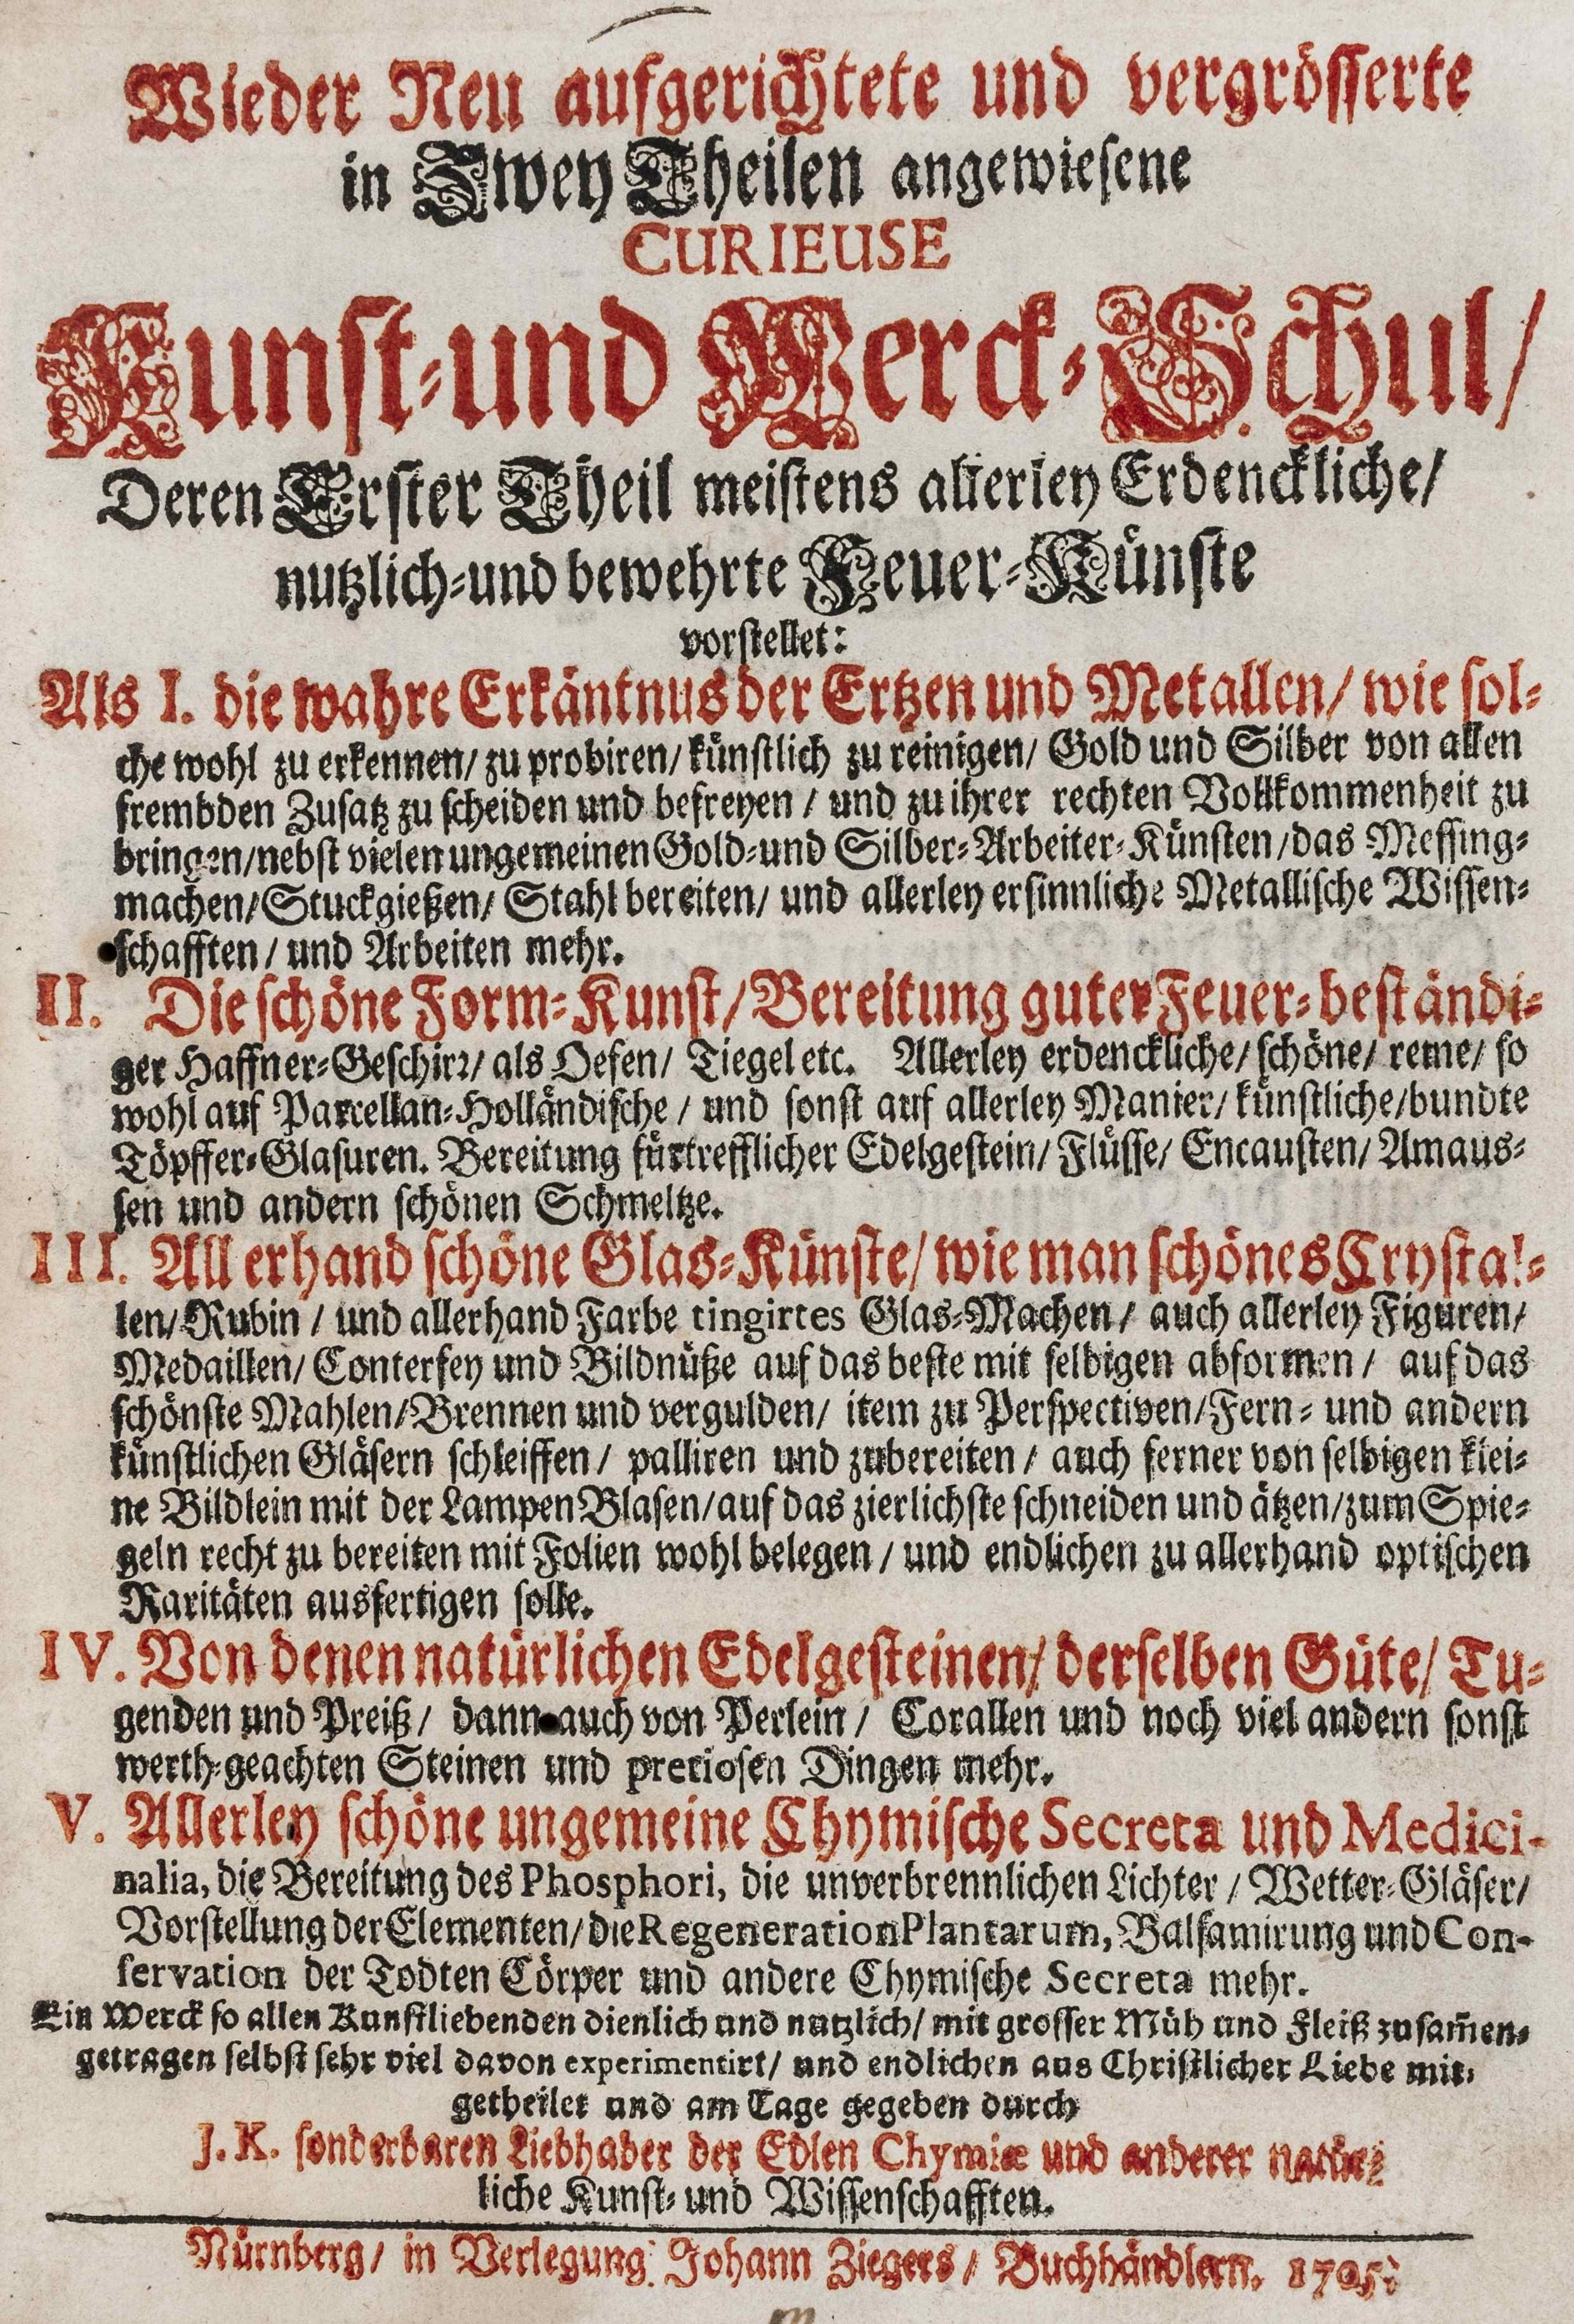 Wieder Neu aufgerichtete und vergrösserte
in Zwey Theilen angewiesene
CURIEUSE
Kunst-und Werck-Schul/
Deren Erster Theil meistens allerley Erdenckliche/
nutzlich-und bewehrte Feuer-Künste
vorstellet:
Als I. die wahre Erkäntnus der Ertzen und Metallen/ wie sol-
che wohl zu erkennen/ zu probiren/ künstlich zu reinigen/ Gold und Silber von allen
frembden Zusatz zu scheiden und befreyen / und zu ihrer rechten Vollkommenheit zu
bringen/nebst vielen ungemeinen Gold-und Silber-Arbeiter-Künsten/das Messing-
machen/Stuckgießen/ Stahl bereiten/ und allerley ersinnliche Metallische Wissen-
schafften/ und Arbeiten mehr.
II. Die schöne Form-Kunst/Bereitung guter Feuer-beständi-
ger Haffner-Geschirr/ als Oefen/ Tiegel etc. Allerley erdenckliche/ schöne/ reine/ so
wohl auf Parcellan-Holländische / und sonst auf allerley Manier/ künstliche/bundte
Töpffer-Glasuren. Bereitung fürtrefflicher Edelgestein/ Flüsse/ Encausten/ Amaus-
sen und andern schönen Schmeltze.
III. Allerhand schöne Glas-Künste/ wie man schönes Crystal-
len/Rubin / und allerhand Farbe tingirtes Glas-Machen/ auch allerley Figuren/
Medaillen/ Conterfey und Bildnüße auf das beste mit selbigen abformen / auf das
schönste Mahlen/Brennen und vergulden/ item zu Perspectiven/Fern- und andern
künstlichen Gläsern schleiffen/ palliren und zubereiten / auch ferner von selbigen klei-
ne Bildlein mit der Lampen Blasen/auf das zierlichste schneiden und ätzen/zum Spie-
geln recht zu bereiten mit Folien wohl belegen / und endlichen zu allerhand optischen
Raritäten ausfertigen solle.
IV. Von denen natürlichen Edelgesteinen/ derselben Güte/ Tu-
genden und Preiß/ dann auch von Perlein / Corallen und noch viel andern sonst
werth-geachten Steinen und pretiosen Dingen mehr.
V. Allerley schöne ungemeine Chymische Secreta und Medici-
nalia, die Bereitung des Phosphori, die unverbrennlichen Lichter / Wetter-Gläser/
Vorstellung der Elementen/die Regeneration Plantarum, Balsamirung und Con-
servation der Todten Cörper und andere Chymische Secreta mehr.
Ein Werck so allen Kunstliebenden dienlich und nutzlich/ mit grosser Müh und Fleiß zusam̃en-
getragen selbst sehr viel davon experimentirt/ und endlichen aus Christlicher Liebe mit-
getheilet und am Tage gegeben durch
J. K. sonderbaren Liebhaber der Edlen Chymiæ und anderer natür-
liche Kunst- und Wissenschafften.
Nürnberg/ in Verlegung Johann Ziegers/ Buchhändlern. 1705.